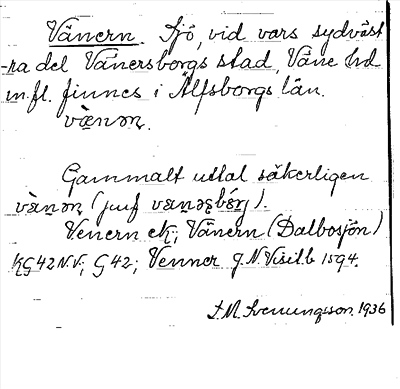 Vänern. Sjö, vid vars sydväst
-ra del Vänersborgs stad, Väne hd
m. fl. finnes i Älfsborgs län.
Gammalt uttal säkerligen
Venern ek; Vänern (Dalbosjön)
KG 42 N.V.; G 42; Venner G.N. Visit.b 1594.
S. M. Svenungsson. 1936